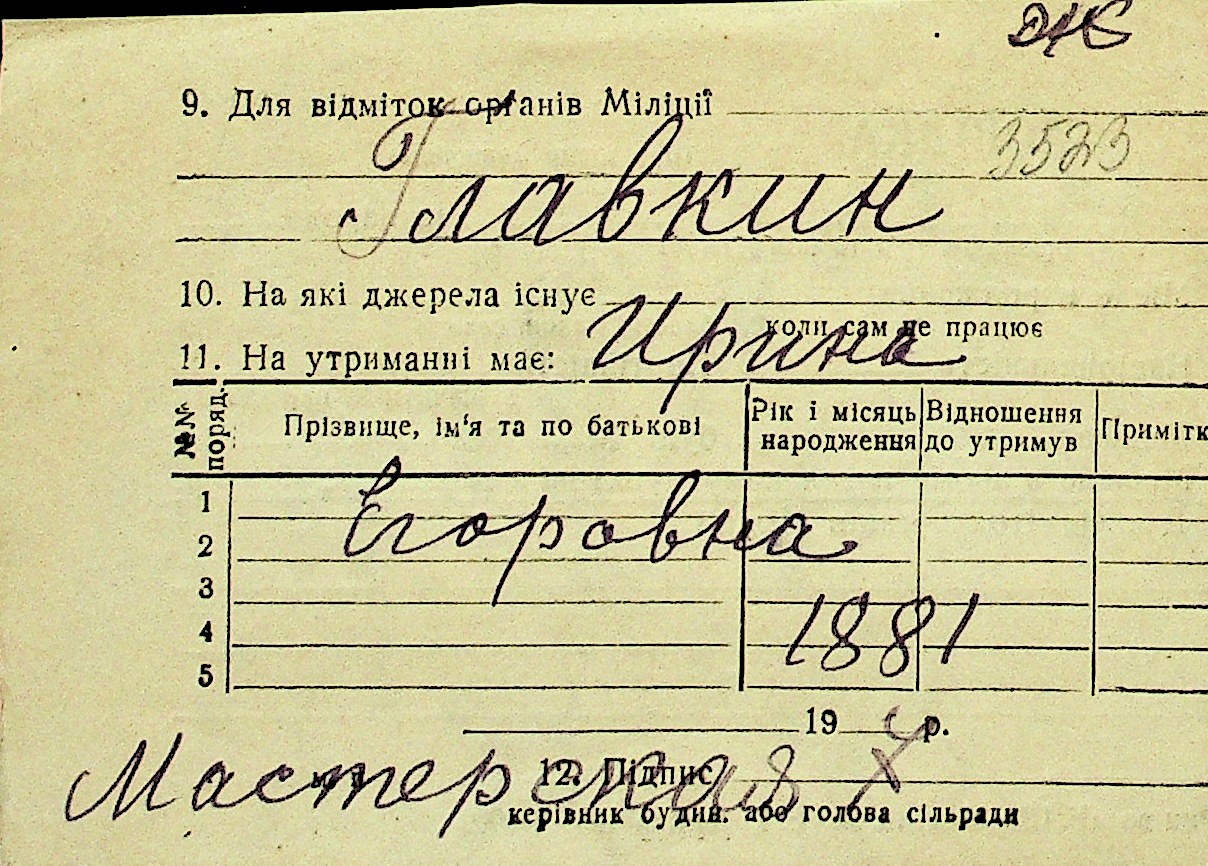 9. Для відміток органів Міліції
3523
Главкин
10. На які джерела існує
коли сам не працює
Ирина
11. На утриманні має:
№№ поряд. Прізвище, ім'я та по батькові Рік і місяць народження Відношення до утримув Примітк
1
Егоровна
2
3
4 1881
5
19 р.
Мастерская
12. Підпис
керівник будин. або голова сільради